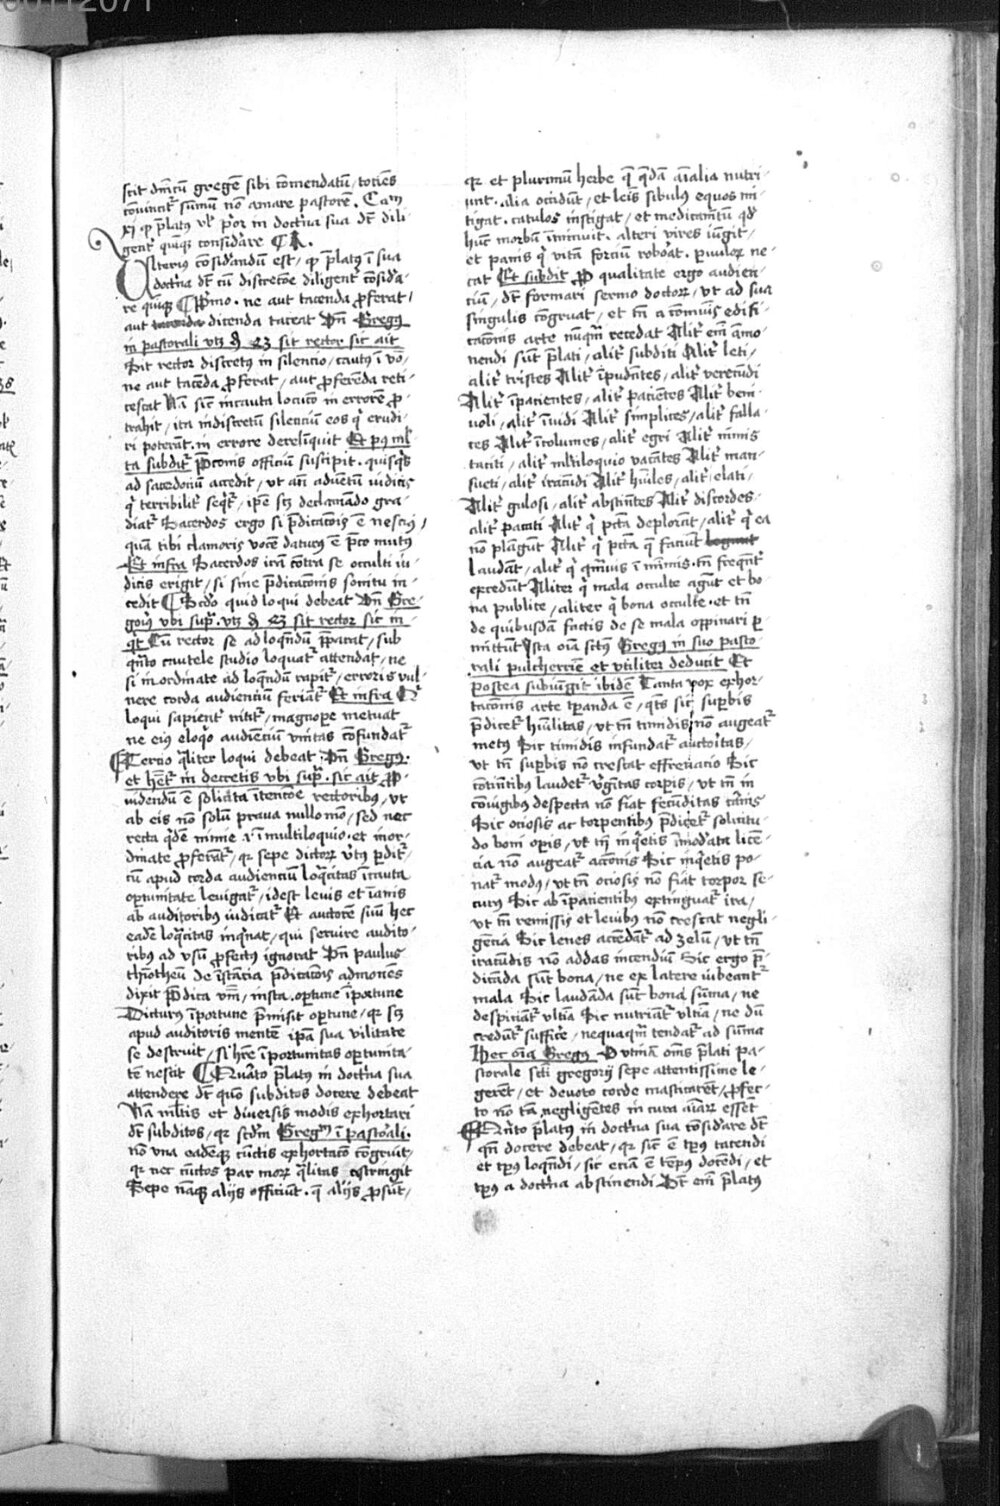 scit dn̄icū gregē sibi cōmendatū / tociēs
cōuincit᷑ sūmū nō amare pastorē . Cam
xj ꝙ p̄latus vl̓ p̓or in doctͥna sua dꝫ dili
gent᷑ quinqꝫ considāre CR .
Vlterius cōsidandū est / ꝙ p̄latꝰ ī sua
doctͥna dꝫ cū discrecōe diligent᷑ cōsida-
re quinqꝫ ¶ Pͥmo . ne aut tacenda ꝓferat /
aut dicenda taceat Vn̄ Gregꝰ
in pastorali vtꝫ d 43 sit rector sic ait
Sit rector discretus in silencio / cautꝰ ī v̓bo
ne aut tacēda ꝓferat / aut ꝓferēda reti-
cescat Nā sicut incauta locuc̄o in errorē ꝓ-
trahit / ita indiscretū silenciū eos qͥ erudi-
ri poterāt . in errore derelīquit Et pꝰ ml̓
ta subdit᷑ Pͤconis officiū suscipit . quisqͥs
ad sacerdociū accedit / vt an̄ aduētū iudicis
qͥ terribilit᷑ seqͥt᷑ / ip̄e scꝫ declamādo gra-
diat᷑ Sacerdos ergo si p̄dicac̄ois ē nesciꝰ /
quā tibi clamoris vocē daturꝰ ē p̄co mutꝰ
Et infra Sacerdos irā cōtra se occulti iu-
dicis erigit / si sine p̄dicac̄ois sonitu in-
cedit ¶ Scd̓o quid loqui debeat Vn̄ Gre-
goriꝰ vbi supͣ . vtꝫ d 43 sit rector sic in-
qͥt Cū rector se ad loqn̄dū p̄parat / sub
qn̄to cautele studio loquat᷑ attendat / ne
si inordinate ad loqn̄dū rapit᷑ / erroris vul-
nere corda audienciū feriāt᷑ Et infra Qͥ
loqui sapient᷑ nitit᷑ / magnope metuat
ne eiꝰ eloqͥo audienciū vnitas cōfundat᷑
¶ Tercio qͣliter loqui debeat . Vn̄ Gregꝰ .
et hēt᷑ in decretis vbi supͣ . sic ait Pro-
uidendū ē solicita ītencōe rectoribus / vt
ab eis nō solū praua nullo mō / sed nec
recta qͥdē nimie ⁊ ī multiloquio . et inor-
dinate ꝓferāt᷑ / qꝛ sepe dictoꝝ vͥtus ꝑdit᷑ /
cū apud corda audienciū loqͣcitas īcauta
oportunitate leuigat᷑ / idest leuis et īanis
ab auditoribus iudicat᷑ Et auctorē suū hec
eadē loqͣcitas inqͥnat / qui seruire audito-
ribus ad vsū ꝓfectꝰ ignorat Vn̄ paulus
thīotheū de īstācia p̄dicac̄ois admonēs
dixit Pͤdica v̄bū / insta . oportune īportune
Dicturꝰ īportune p̄misit oportune / qꝛ scꝫ
apud auditoris mentē ip̄a sua vilitate
se destruit / si hr̄e īportunitas oportunita-
tē nescit ¶ Quarto p̄latus in doctͥna sua
attendere dꝫ quō subditos docere debeat
Nā ml̓tis et diuersis modis exhortari
dꝫ subditos / qꝛ scd̓m Gregm̄ ī pastorali .
nō vna eadēqꝫ cūctis exhortacō cōgruit /
qꝛ nec cūctos par moꝝ qͣlitas astringit
Sepe nāqꝫ alijs officiūt . qͤ alijs ꝓsūt /
qꝛ et plurimū herbe qͤ qͣdā aīalia nutri-
unt . alia occidūt / et leīs sibulus equos mi-
tigat . catulos instigat / et medicamtū qd̓
hūc morbū īminuit . alteri vires iūgit /
et panis qͥ vitā forciū roborat . puuloꝝ ne-
cat Et subdit Pro qualitate ergo audien-
ciū / dꝫ formari sermo doctoꝝ / vt ad sua
singulis cōgruat / et tn̄ a cōmunis edifi-
cacōnis arte nūqͣm recedat Alit᷑ em̄ āmo-
nendi sūt p̄lati / alit᷑ subditi Alit᷑ leti /
alit᷑ tristes Alit᷑ īpudētes / alit᷑ verecūdi
Alit᷑ īpacientes / alit᷑ paciētes Alit᷑ beni-
uoli / alit᷑ īuidi Alit᷑ simplices / alit᷑ falla-
ces Alit᷑ īcolumes / alit᷑ egri Alit᷑ nimis
taciti / alit᷑ ml̓tiloquio vacātes Alit᷑ man-
sueti / alit᷑ iracūdi Alit᷑ hūiles / alit᷑ elati /
Alit᷑ gulosi / alit᷑ abstinētes Alit᷑ discordes .
alit᷑ pacati Alit᷑ qͥ pctā deplorāt / alit᷑ qͥ ea
nō plāgūt Alit᷑ qͥ pctā qͤ faciūt
laudāt / alit᷑ qͥ qͣmuis ī mīmis . tn̄ freqn̄t᷑
excedūt Aliter qͥ mala occulte agūt et bo-
na publice / aliter qͥ bona occulte . et tn̄
de quibusdā factis de se mala oppinari ꝑ-
mittūt Ista oīa sctꝰ Gregꝰ in suo pasto-
rali pulcherrīe et vtiliter deducit Et
postea subiungit ibidē Tanta vox exhor-
tacōnis arte tpanda ē / qͣtꝰ sic suꝑbis
p̄dicet᷑ hūilitas / vt tn̄ timidis nō augeat᷑
metꝰ Sic timidis infundat᷑ auctoritas /
vt tn̄ suꝑbis nō crescat effrenacio Sic
cōtinētibus laudet᷑ vͥgītas corꝑis / vt tn̄ in
cōiugibus despecta nō fiat fecūditas carnis
Sic ociosis ac torpentibus p̄dicet᷑ solicitu-
do boni oꝑis / vt tn̄ inqͥetis īmodata licē-
cia nō augeat᷑ acc̄onis Sic inqͥetis po-
nat᷑ modꝰ / vt tn̄ ociosis nō fiat torpor se-
curꝰ Sic ab īpacientibus extinguat᷑ ira /
vt tn̄ remissis et leuibus nō crescat negli-
gēcia Sic lenes accēdāt᷑ ad zelū / vt tn̄
iracūdis nō addas incendiū Sic ergo p̄-
dicāda sūt bona / ne ex latere iubeant᷑
mala Sic laudāda sūt bona sūma / ne
despiciāt᷑ vltīa Sic nutriāt᷑ vltīa / ne dū
credūt᷑ suffice / nequaqͣm tendat᷑ ad sūma
Hec oīa Gregꝰ O vtinā om̄s p̄lati pa-
storale scti gregorij sepe attentissime le-
gerēt / et deuoto corde masticarēt / ꝓfec-
to nō tā negligētes in cura aīarꝝ essēt
¶ Quīto p̄latꝰ in doctͥna sua cōsidare dꝫ
qn̄ docere debeat / qꝛ sic̄ ē tp̄us tacendi
et tp̄us loqn̄di / sic eciā ē tēpꝰ docēdi / et
tp̄us a doctͥna abstinendi Dꝫ em̄ p̄latus